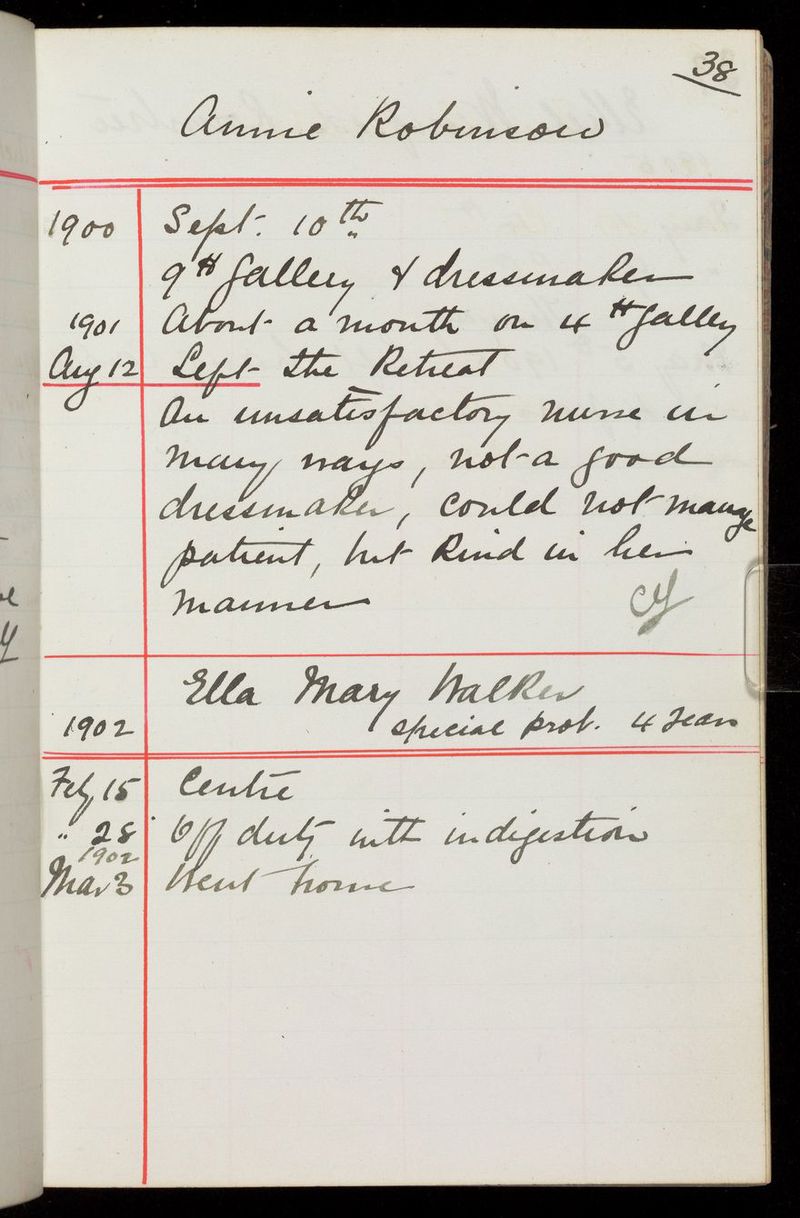 38
Annie Robinson
1900 Sept. 10th
9th Gallery & dressmaker
1901 About a month on 4th Gallery
Aug 12 Left the Retreat
An unsatisfactory nurse in
many ways, not a good
dressmaker, could not manage
patient, but kind in her
manner
Ella Mary Walker
1902 special prob. 4 years
Feb 15 Centre
" 28 Off duty with indigestion
1902
Mar 3 Went home